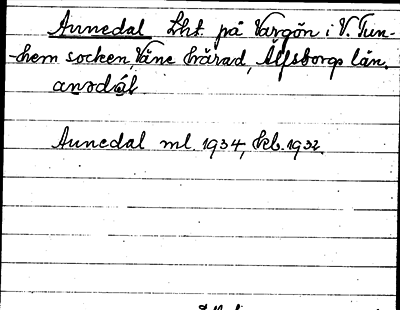 Annedal Lht. på Vargön i V. Tun-
hem socken, Väne härad, Älfsborgs län.
Annedal ml. 1934, kb. 1932.